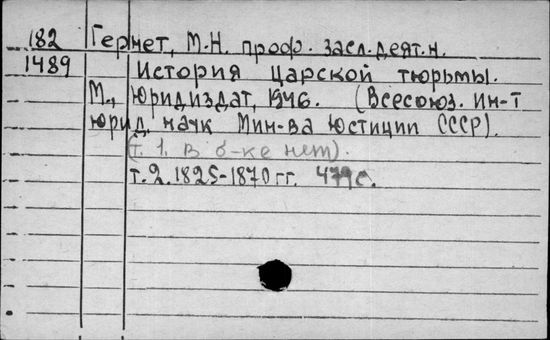 182 Гернет, М.Н. проф. засл.деят.н.
1489 История царской тюрьмы.
М., Юридиздат, 1946. (Всесоюз. ин-т
юрид. наук Мин-ва Юстиции СССР).
(т. 1. в б-ке нет).
т. 2. 1825-1870 гг. 479 с.